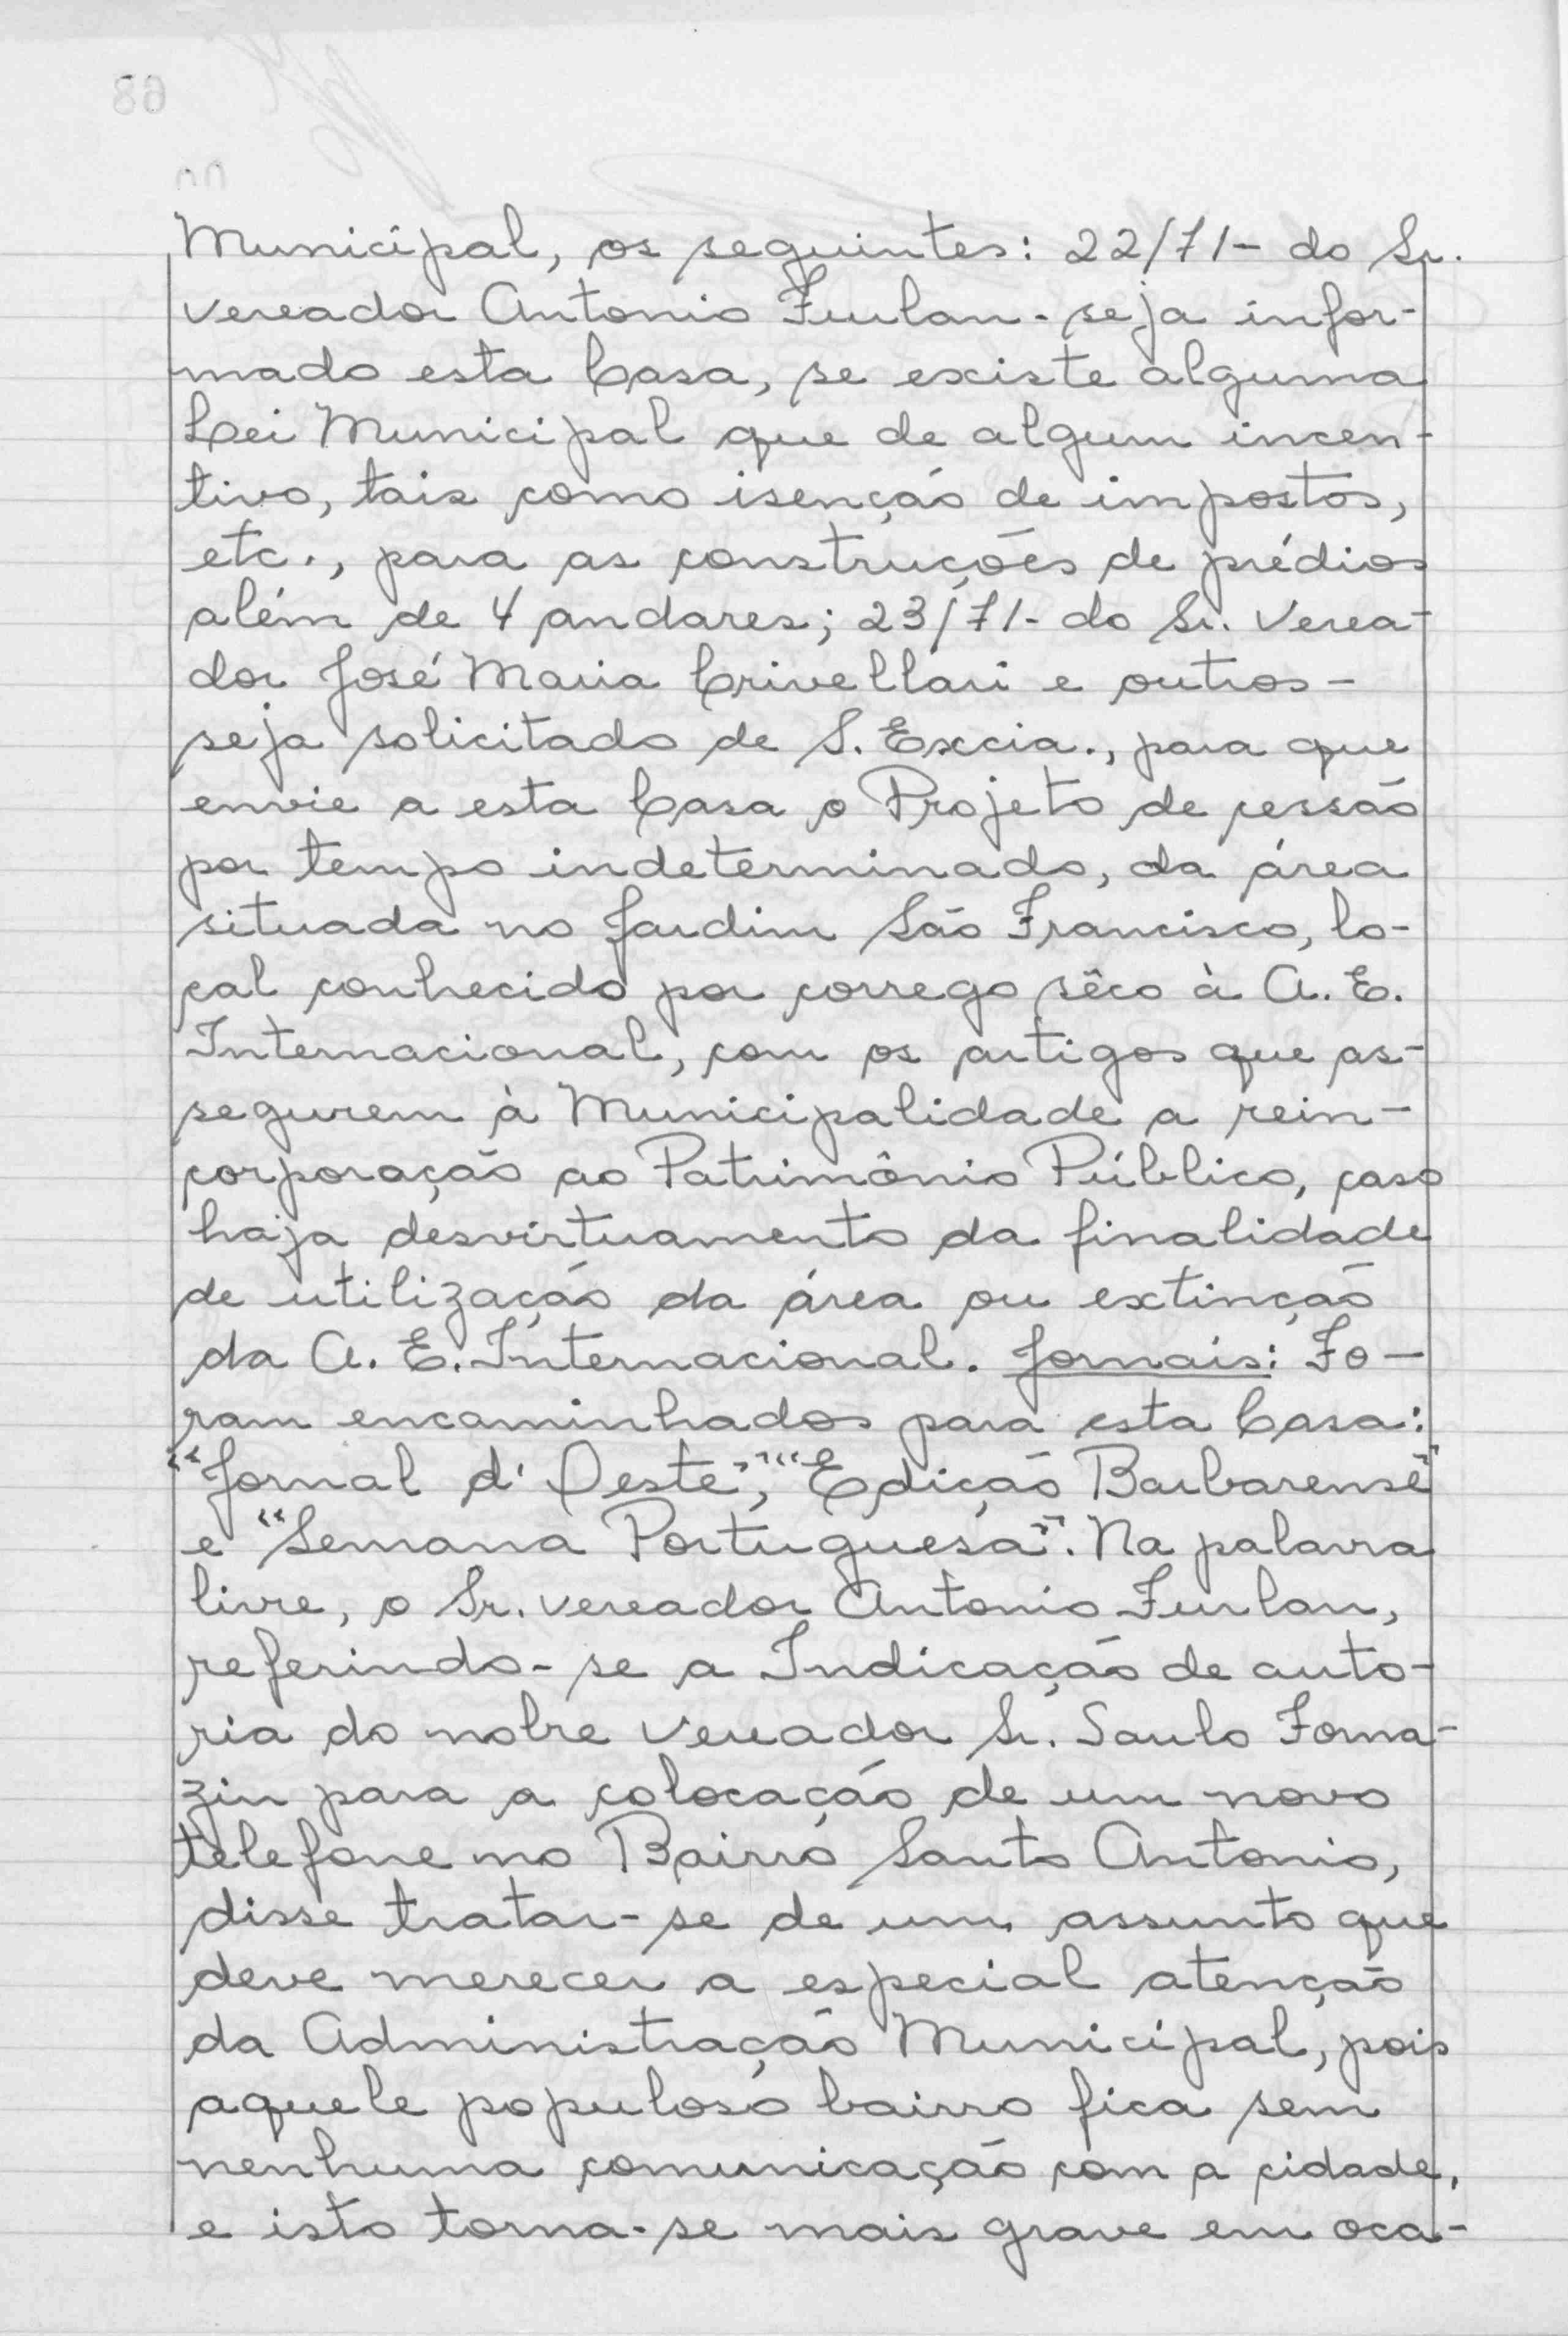 Municipal, os seguintes: 22/71- do Sr.
vereador Antonio Furlan - seja infor-
mado esta Casa, se existe alguma
Lei Municipal que de algum incen-
tivo, tais como isenção de impostos,
etc., para as construções de prédios
além de 4 andares; 23/71- do Sr. Verea-
dor José Maria Crivellari e outros -
seja solicitado de S. Excia., para que
envie a esta Casa o Projeto de cessão
por tempo indeterminado, da área
situada no Jardim São Francisco, lo-
cal conhecido por corrego sêco à A. E.
Internacional, com os artigos que as-
segurem à Municipalidade a rein-
corporação ao Patrimônio Público, caso
haja desvirtuamento da finalidade
de utilização da área ou extinção
da A. E. Internacional. Jornais: Fo-
ram encaminhados para esta Casa:
"Jornal d'Oeste", "Edição Barbarense"
e "Semana Portuguesa". Na palavra
livre, o Sr. vereador Antonio Furlan,
referindo-se a Indicação de auto-
ria do nobre vereador Sr. Saulo Forna-
zin para a colocação de um novo
telefone no Bairro Santo Antonio,
disse tratar-se de um assunto que
deve merecer a especial atenção
da Administração Municipal, pois
aquele populoso bairro fica sem
nenhuma comunicação com a cidade,
e isto torna-se mais grave em oca-